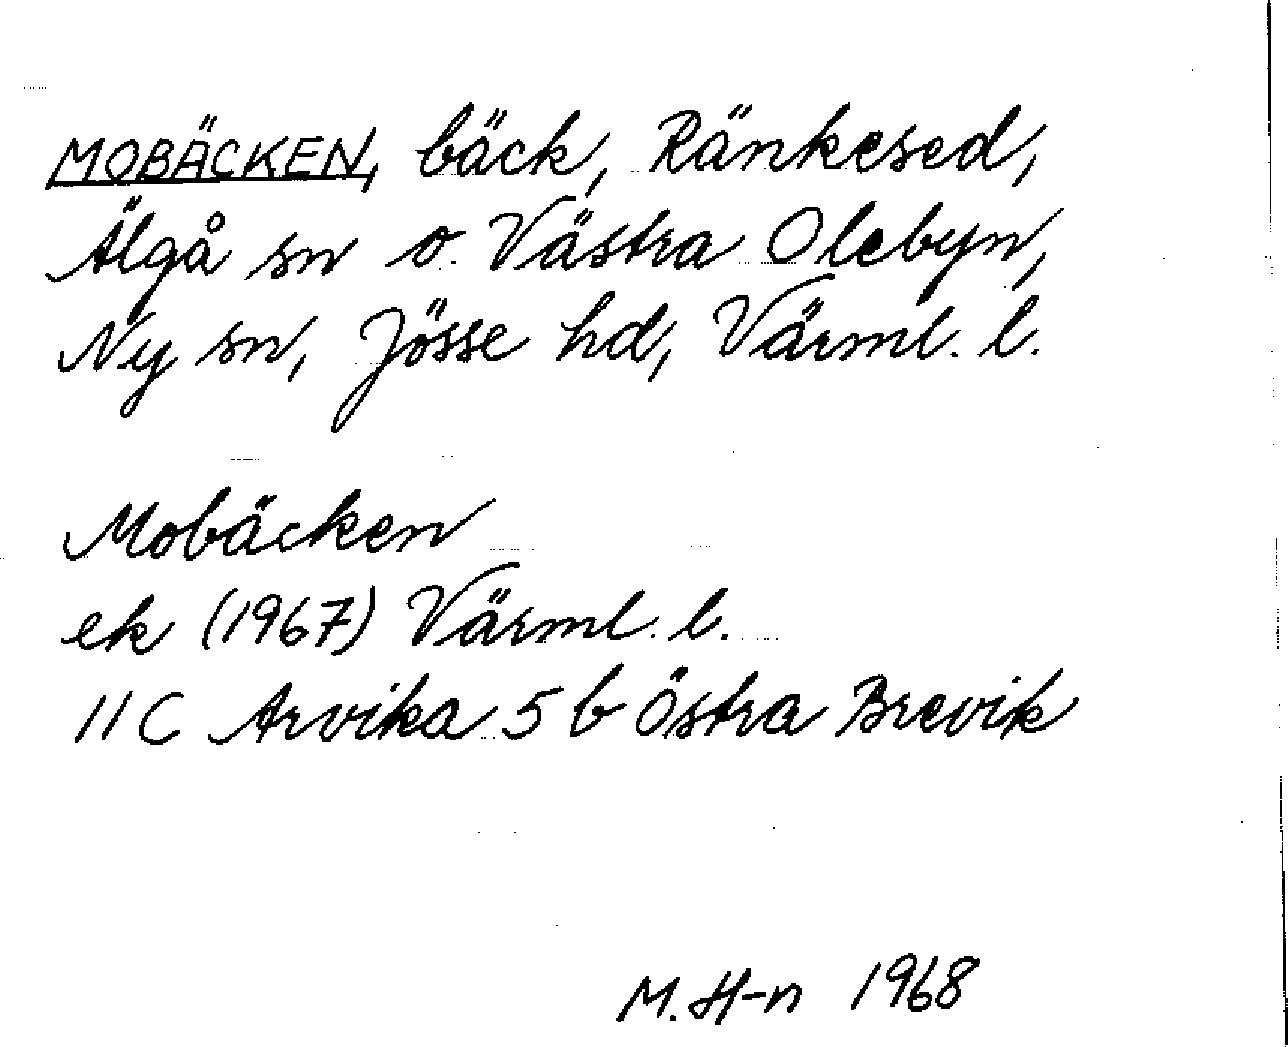 MOBÄCKEN, bäck, Ränkesed,
Älgå sn o. Västra Olebyn,
Ny sn, Jösse hd, Värml. l.
Mobäcken
ek (1967) Värml. l.
11C Arvika 5b Östra Brevik
M. H-n 1968